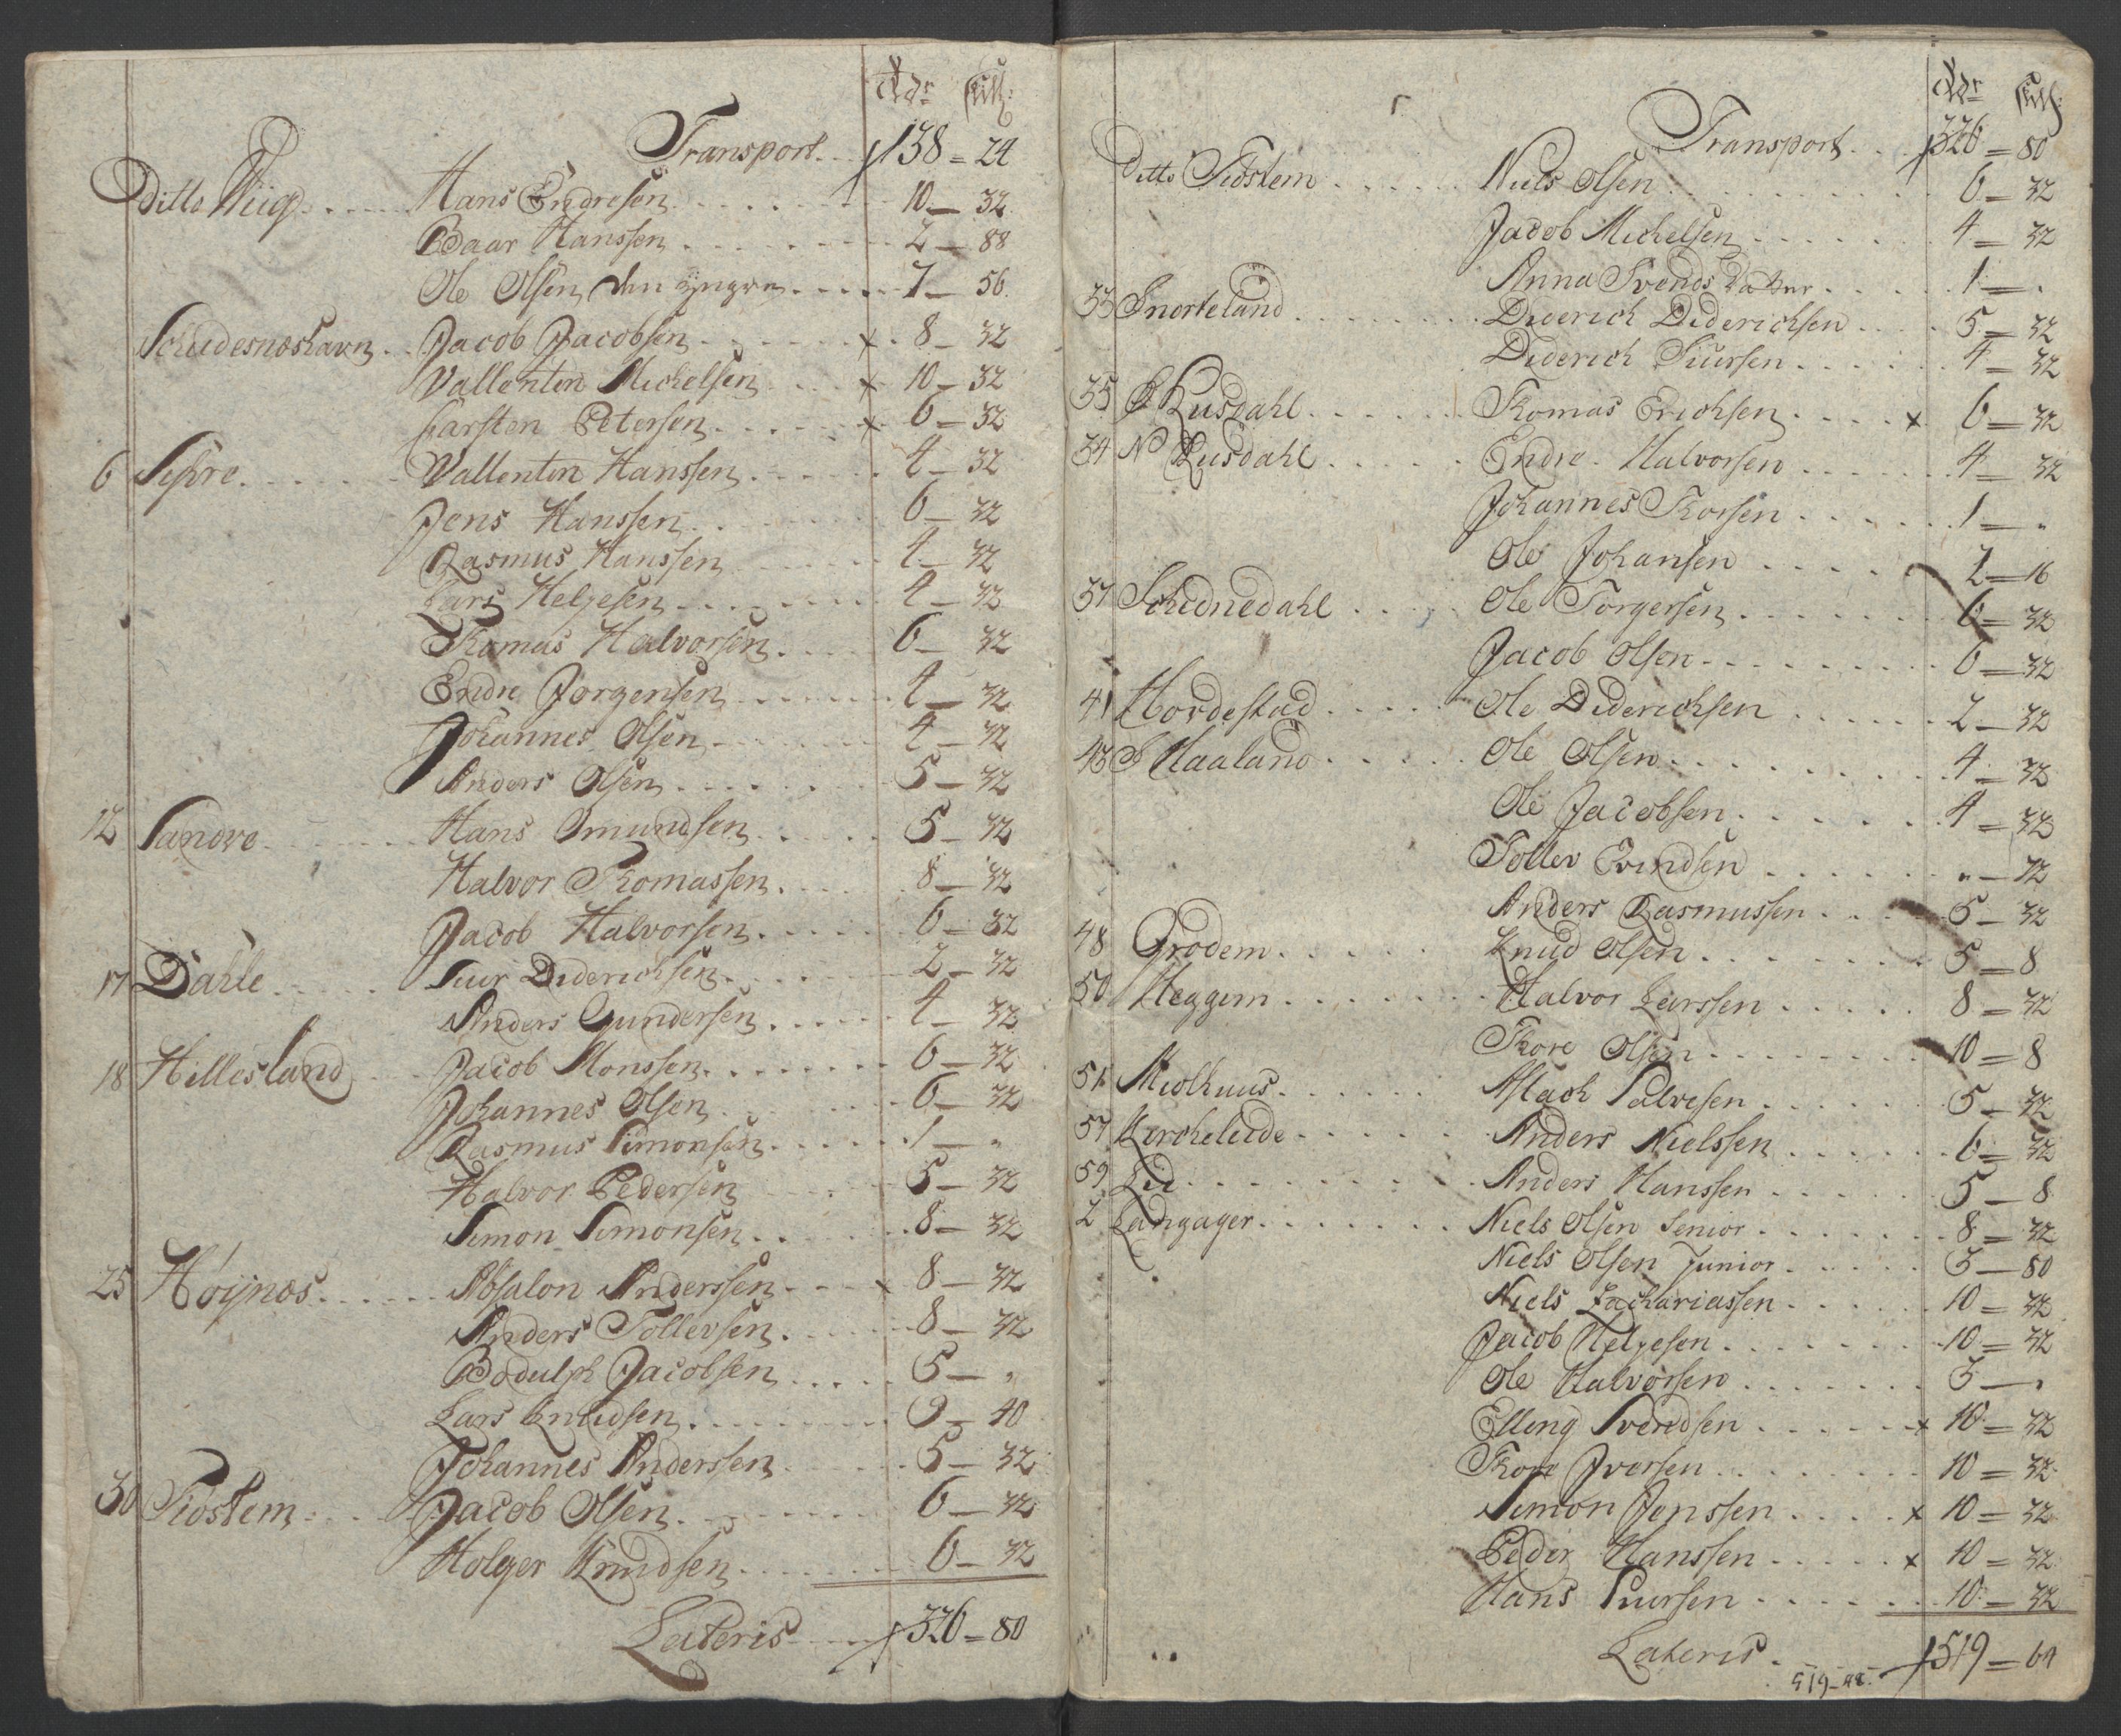 Rdr Skill:
Transport. 138 = 24
Ditto Wiig Hans Endresen 10 — 32
Baar Hanssen 2 — 88
Ole Olsen den yngre 7 — 56
Schudesnæshavn Jacob Jacobsen x 8 — 32
Vallentin Michelsen x 10 — 32
Carsten Petersen x 6 — 32
6 Syre Vallentin Hanssen 4 — 32
Jens Hanssen 6 — 32
Rasmus Hanssen 4 — 32
Lars Helgesen 4 — 32
Thomas Halvorsen 6 — 32
Endre Jørgensen 4 — 32
Johannes Olsen 4 — 32
Anders Olsen 5 — 32
12 Sandve Hans Omundsen 5 — 32
Halvor Thomassen 8 — 32
Jacob Halvorsen 6 — 32
17 Dahle Siur Diderichsen 2 — 32
Anders Gundersen 4 — 32
18 Hillesland Jacob Monssen 6 — 32
Johannes Olsen 6 — 32
Rasmus Simonsen 1 — "
Halvor Pedersen 5 — 32
Simon Simonsen 8 — 32
25 Høynæs Absalon Anderssen x 8 — 32
Anders Tollevsen 8 — 32
Bodulph Jacobsen 5 — "
Lars Knudsen 9 — 40
Johannes Anderssen 5 — 32
30 Tiostem Jacob Olsen 6 — 32
Holger Knudsen 6 — 32
Lateris 326 = 80
Rdr Skill:
Transport 326 = 80
Ditto Tiostem Niels Olsen 6 — 32
Jacob Michelsen 4 — 32
Anna Svends Datter 1 — "
33 Snorteland Diderich Diderichsen 5 — 32
Diderich Siursen 4 — 32
35 Ø Liusdahl Thomas Erichsen x 6 — 32
34 N Liusdahl Endre Halvorsen 4 — 32
Johannes Thorsen 1 — "
Ole Johansen 2 — 16
37 Schidnedahl Ole Torgersen 6 — 32
Jacob Olsen 6 — 32
41 Hordestad Ole Diderichsen 2 — 32
43 S Haaland Ole Olsen 4 — 32
Ole Jacobsen 4 — 32
Tollev Evindsen " — 72
Anders Rasmussen 5 — 32
48 Grødem Knud Olsen 5 — 8
50 Heggem Halvor Larssen 8 — 32
Thore Olsen 10 — 8
51 Miølhuus Aslach Salvesen 5 — 32
57 Kircheleide Anders Nielssen 6 — 32
59 Lid Anders Hanssen 5 — 8
2 Langager Niels Olsen Senior 8 — 32
Niels Olsen Junior 3 — 80
Niels Zachariassen 10 — 32
Jacob Helgesen 10 — 32
Ole Halvorsen 3 — "
Elling Svendsen x 10 — 32
Thore Iversen 10 — 32
Simon Jenssen x 10 — 32
Peder Hanssen x 10 — 32
Hans Siursen 10 — 32
Lateris 519 — 64
519-48